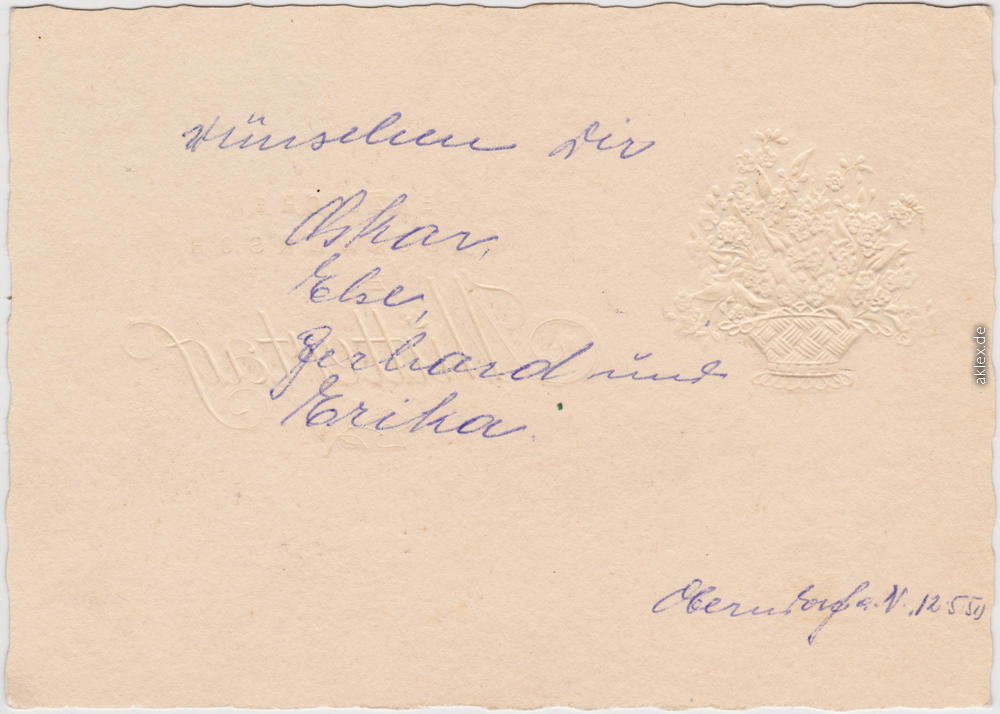 wünschen Dir
Oskar,
Else,
Gerhard und
Erika.
Muttertag
Oberndorf a. N. 12.5.50
aklex.de